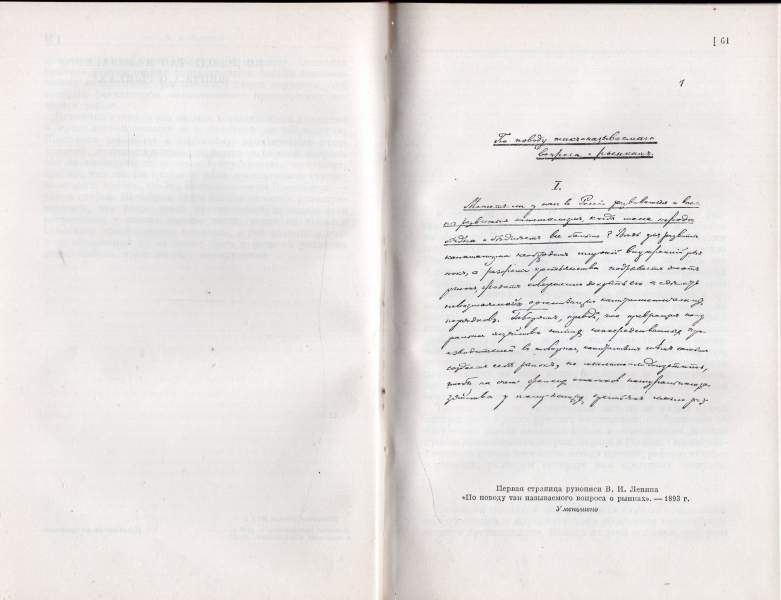 61
1
По поводу такъ называемаго
вопроса о рынкахъ.
I.
Можетъ ли у насъ въ Россіи развиваться и вполнѣ развиться
капитализмъ, когда масса народа
бѣдна и бѣднѣетъ все больше? Вѣдь для развитія
капитализма необходимъ широкій внутренній ры-
нокъ, а разореніе крестьянства подрываетъ этотъ
рынокъ, грозитъ совершенно закрыть его и сдѣлать
невозможной организацію капиталистическихъ
порядковъ. Говорятъ, правда, что, превращая нату-
ральное хозяйство нашихъ непосредственныхъ про-
изводителей въ товарное, капитализмъ тѣмъ самымъ
создаетъ себѣ рынокъ, но мыслимо ли допустить,
чтобы на счет остатковъ натуральнаго хо-
зяйства у крестьянъ могло раз-
Первая страница рукописи В. И. Ленина
«По поводу так называемого вопроса о рынках». — 1893 г.
Уменьшено